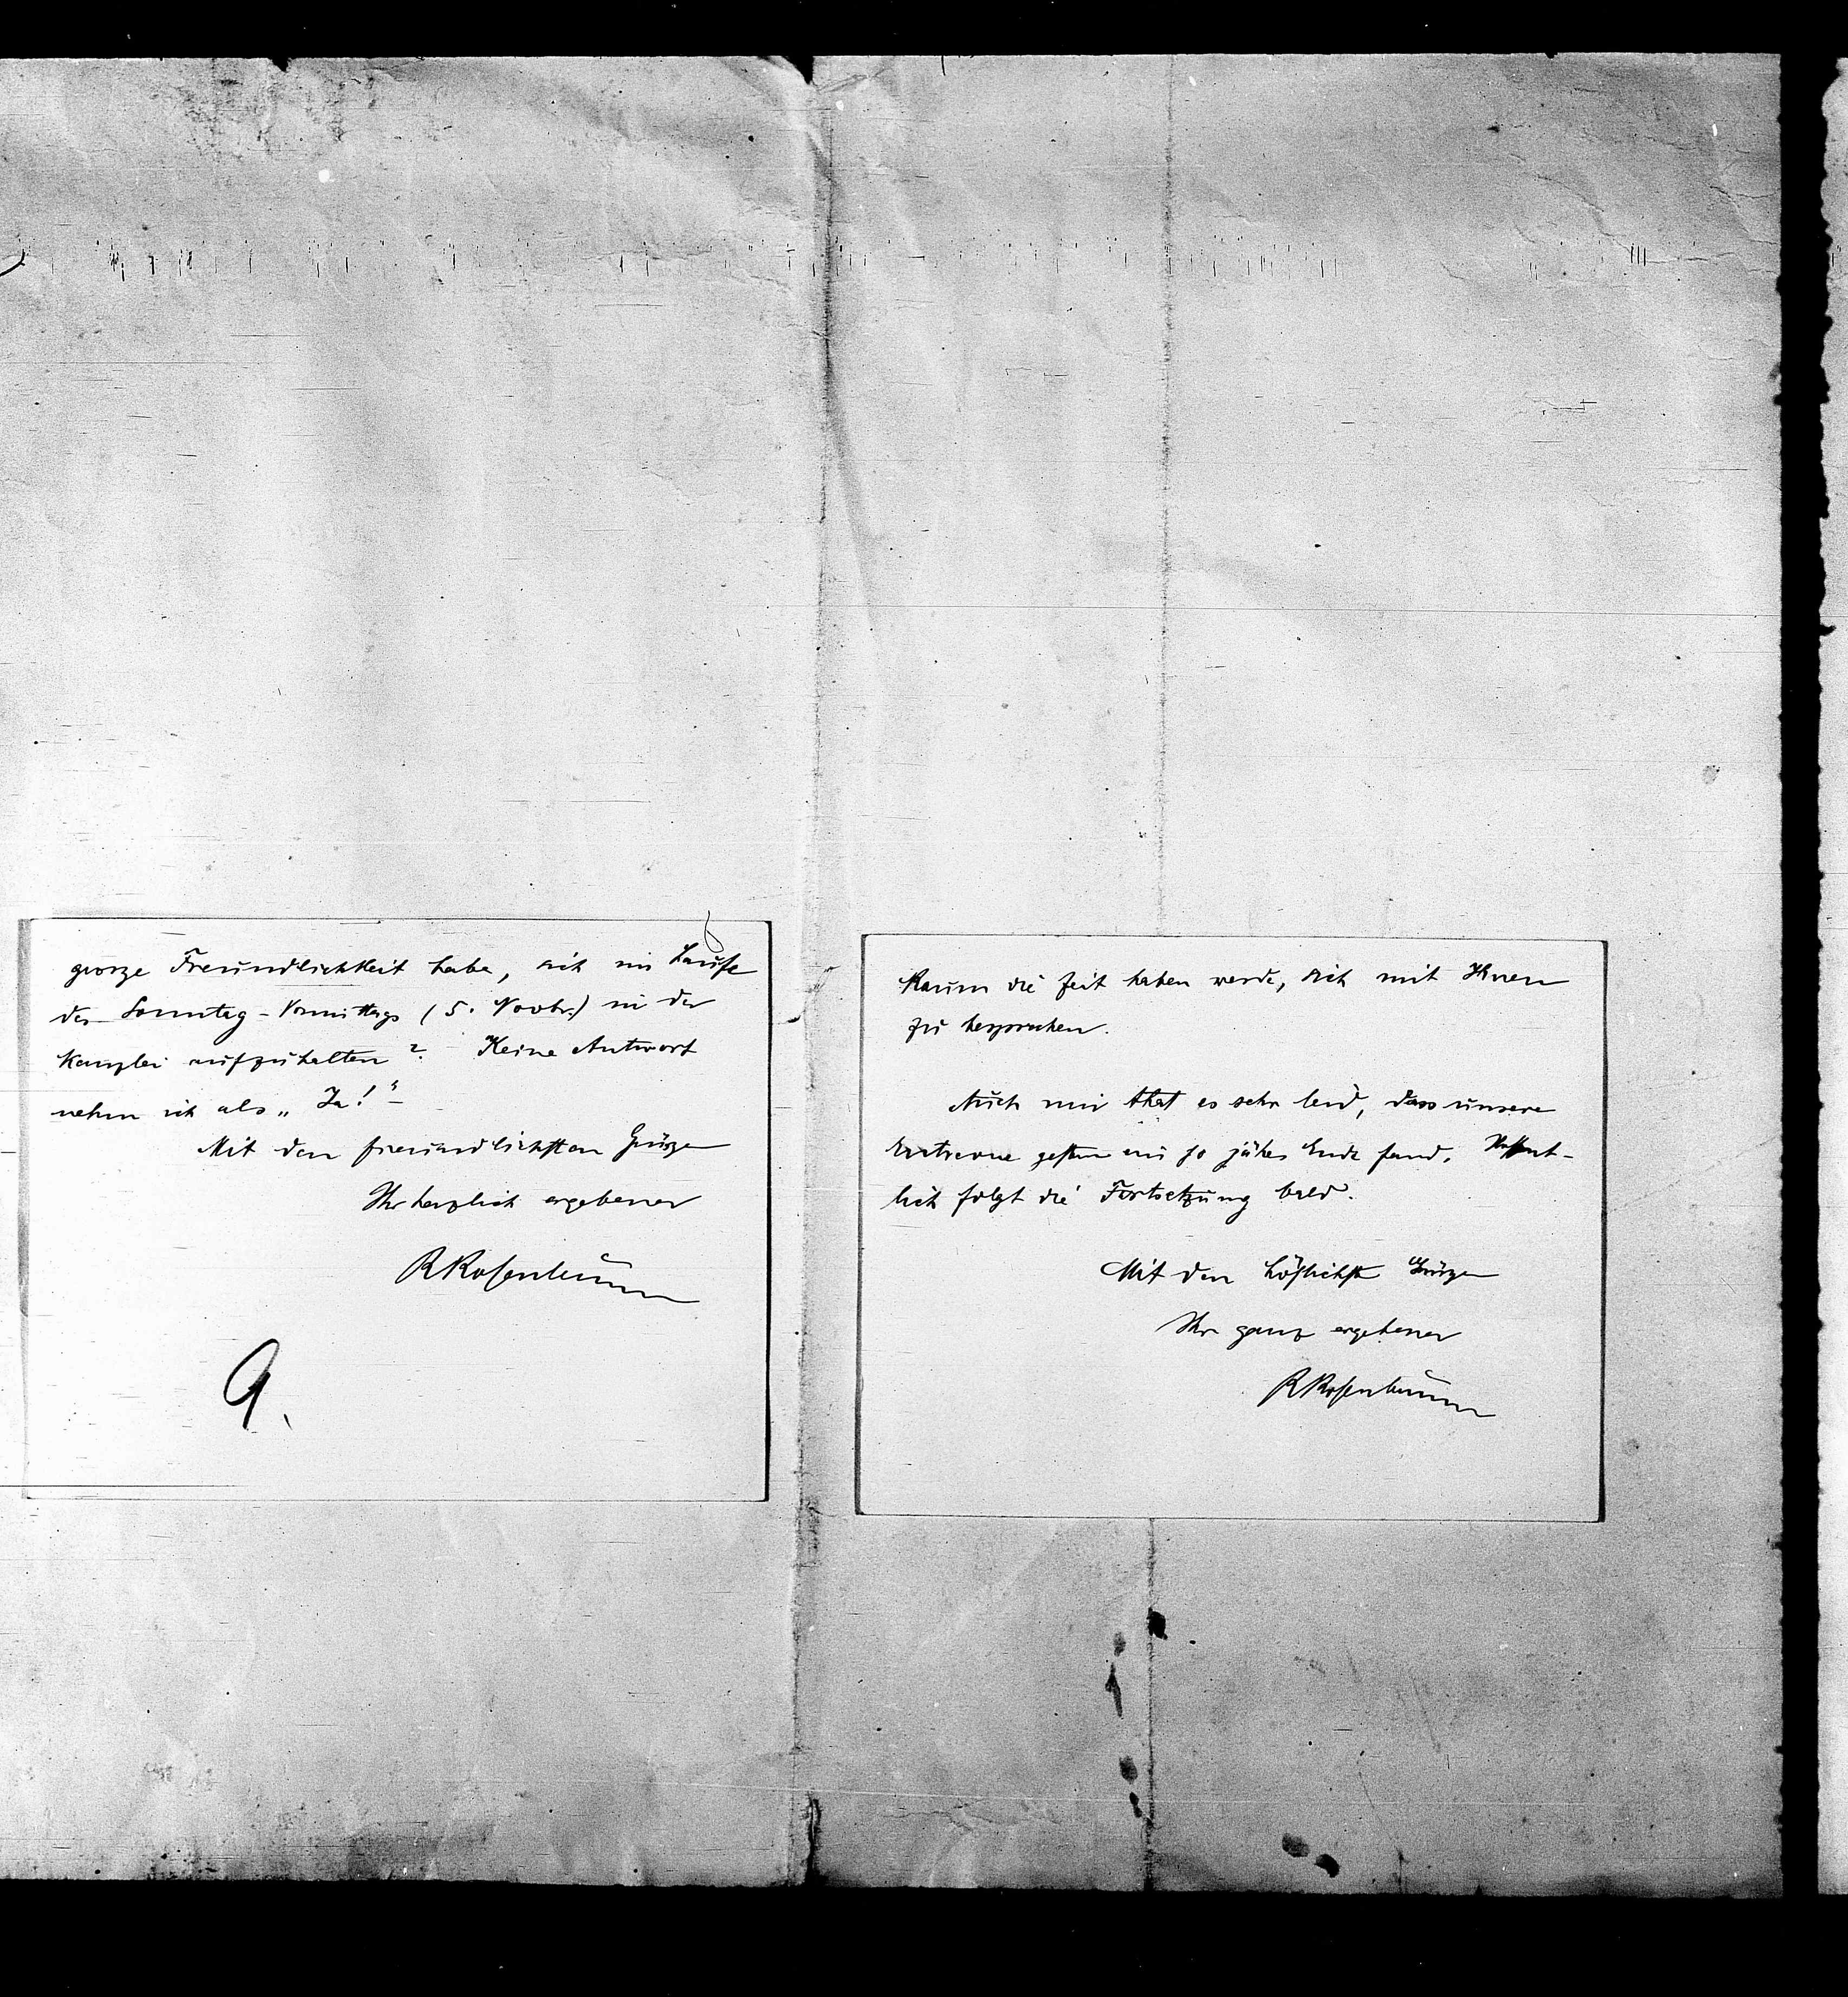 grosze Freundlichkeit habe, sich im Laufe
des Sonntag-Vormittags (5. Novbr.) in der
Kanzlei aufzuhalten? Keine Antwort
nehm ich als „Ja!“
Mit den freundlichsten Grüßen
Ihr herzlich ergebener
RRosenbaum
9.
Kaum die Zeit haben werde, sich mit Ihnen
zu besprechen.
Auch mir that es sehr leid, dass unsere
Entrevue gestern ein so jähes Ende fand. Hoffent-
lich folgt die Fortsetzung bald.
Mit den höflichst Grüßen
Ihr ganz ergebener
RRosenbaum